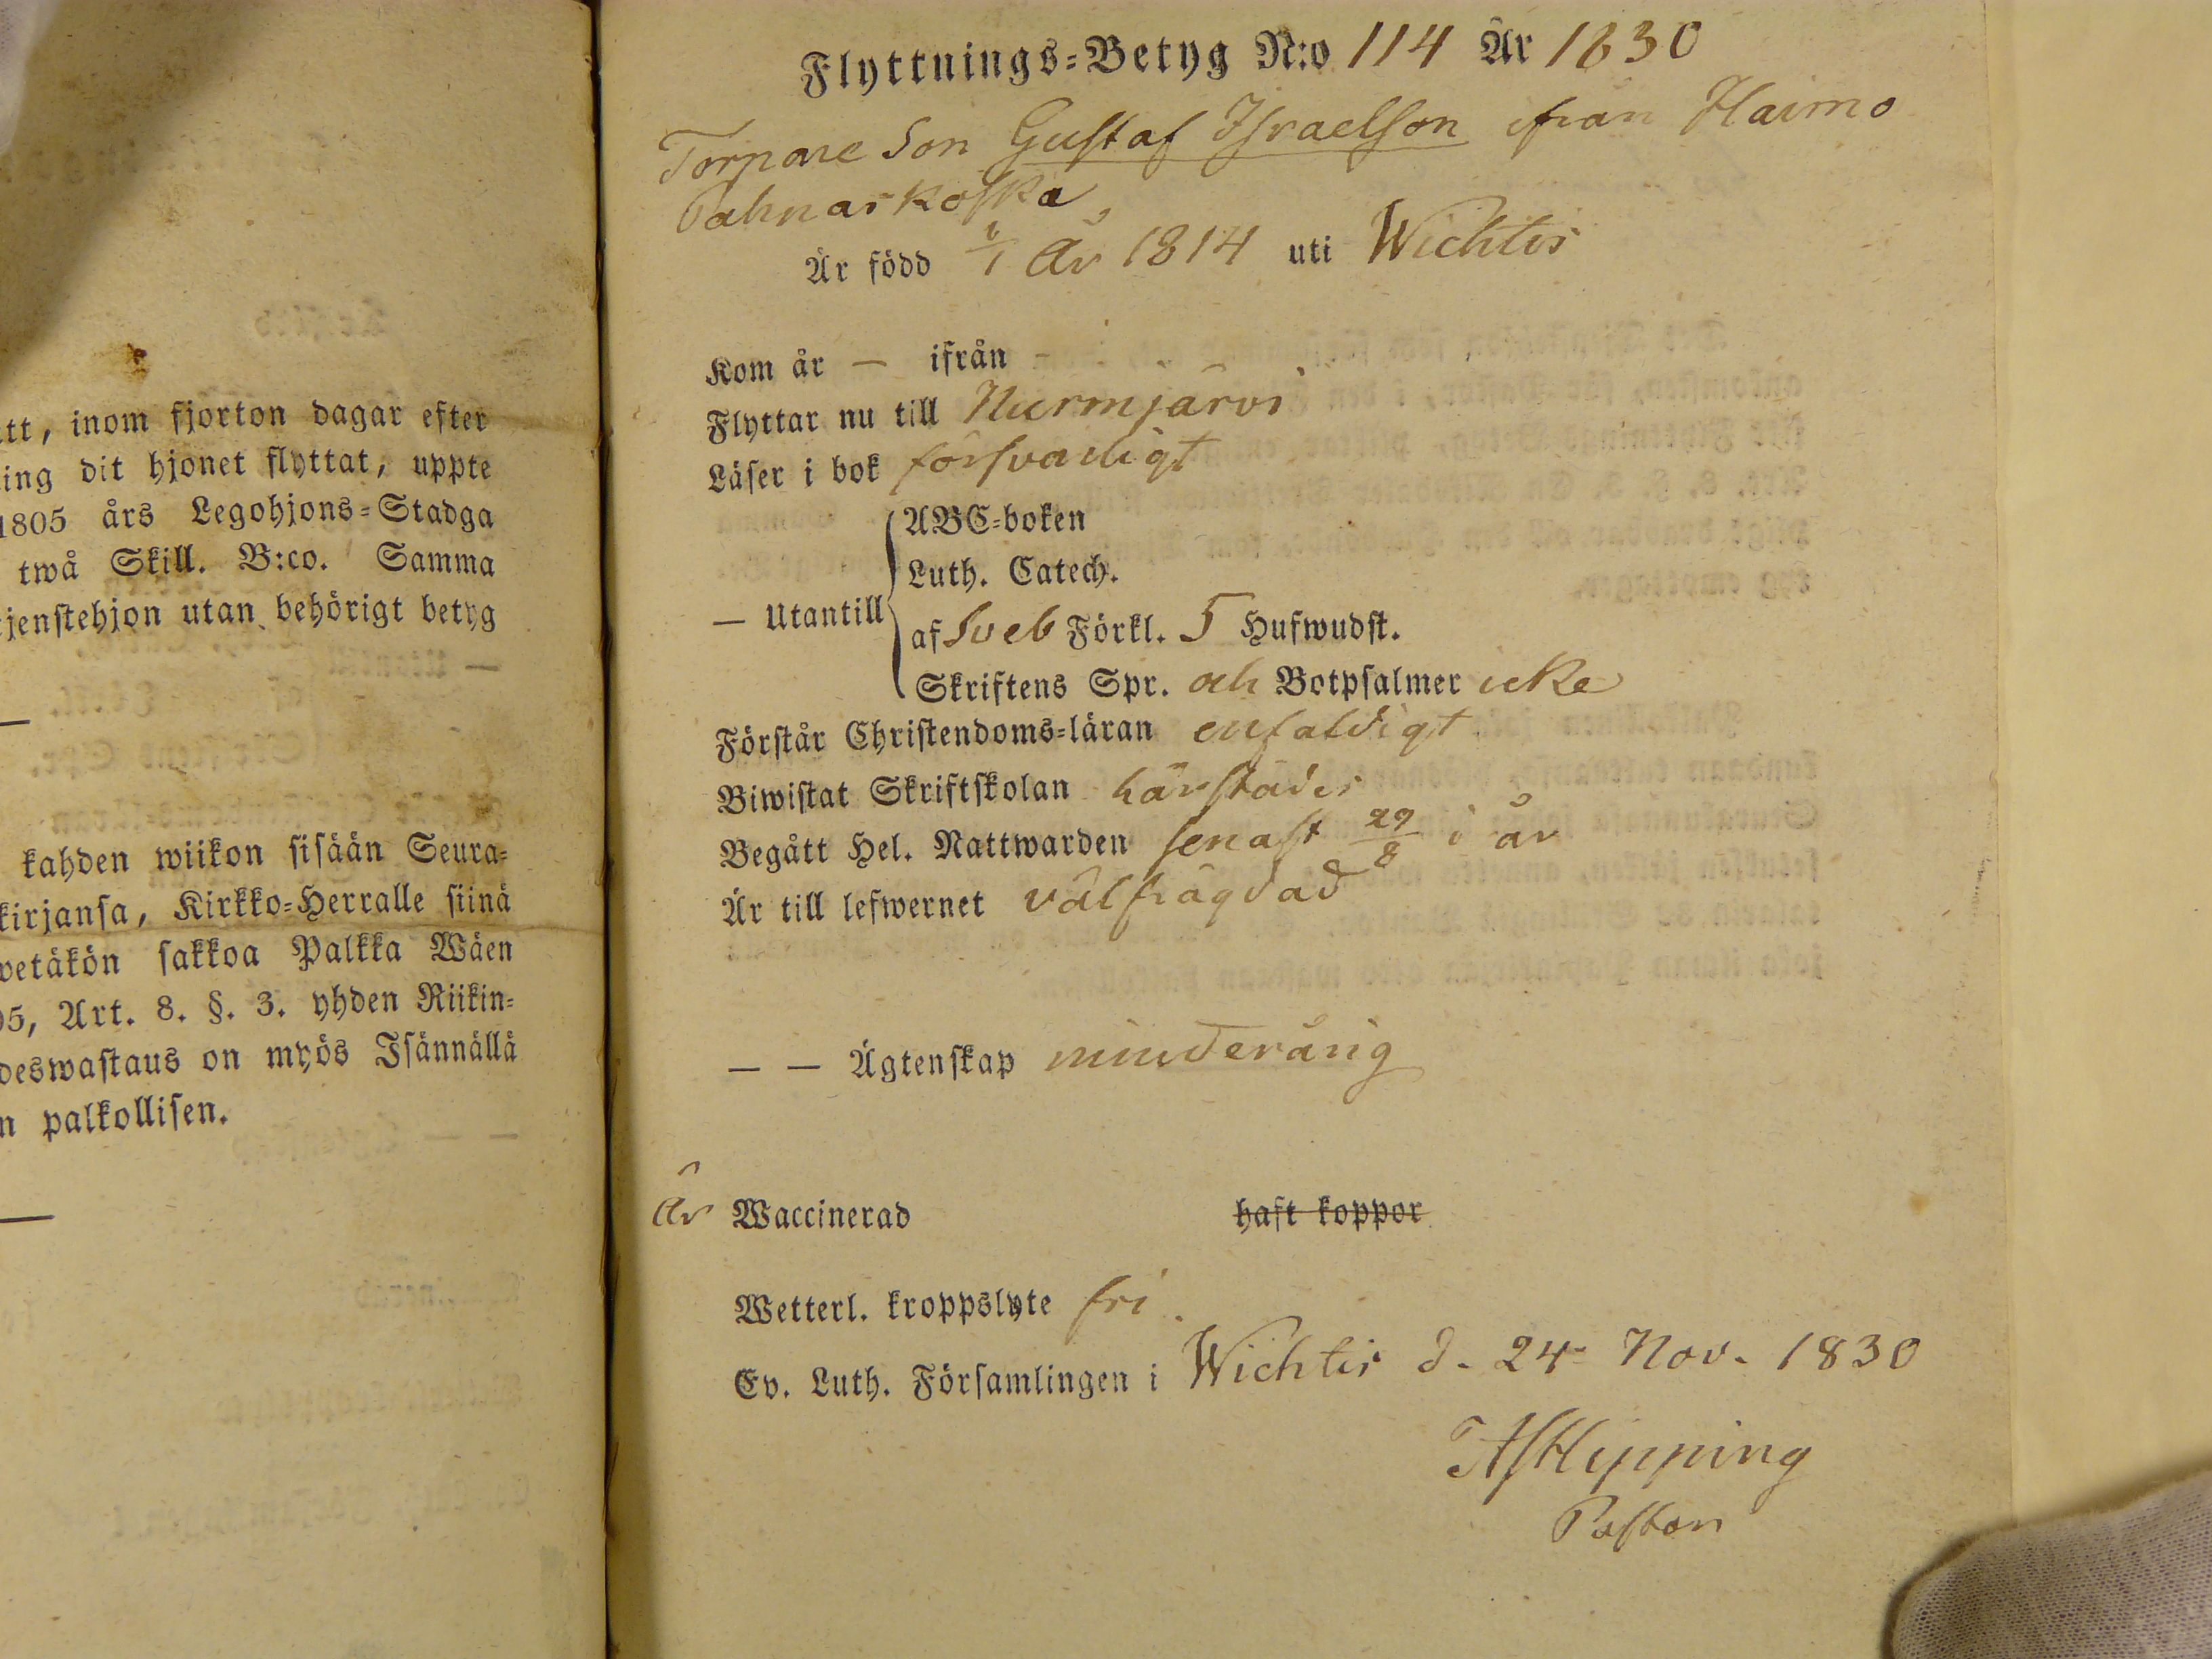 tt, inom fjorton dagar efter
ing dit hjonet flyttat, uppte
1805 års Legohjons-Stadga
twå Skill. B:co. Samma
jenstehjon utan behörigt betyg
kahden wiikon sisään Seura-
kirjansa, Kirkko-Herralle siinä
wetäkön sakkoa Palkka Wäen
05, Art. 8. §. 3. yhden Riikin-
deswastaus on myös Isännällä
n palkollisen.
Flyttnings-Betyg N:o 114 År 1830
Torpare Son Gustaf Israelson ifrån Haimo
Pahnarkoska
Är född År 1814 uti Wichtis
Kom år — ifrån —
Flyttar nu till Nurmjärvi
Läser i bok försvarligt
— Utantill
ABC-boken
Luth. Catech.
af Sveb Förkl. 5 Hufwudst.
Skriftens Spr. och Botpsalmer icke
Förstår Christendoms-läran enfaldigt
Biwistat Skriftskolan härstädes
Begått Hel. Nattwarden senast 29/8 i år
Är till lefwernet välfrägdad
— — Ägtenskap minderårig
Är Waccinerad haft koppor
Wetterl. kroppslyte fri.
Ev. Luth. Församlingen i Wichtis d. 24 Nov. 1830
Hipping
Pastor